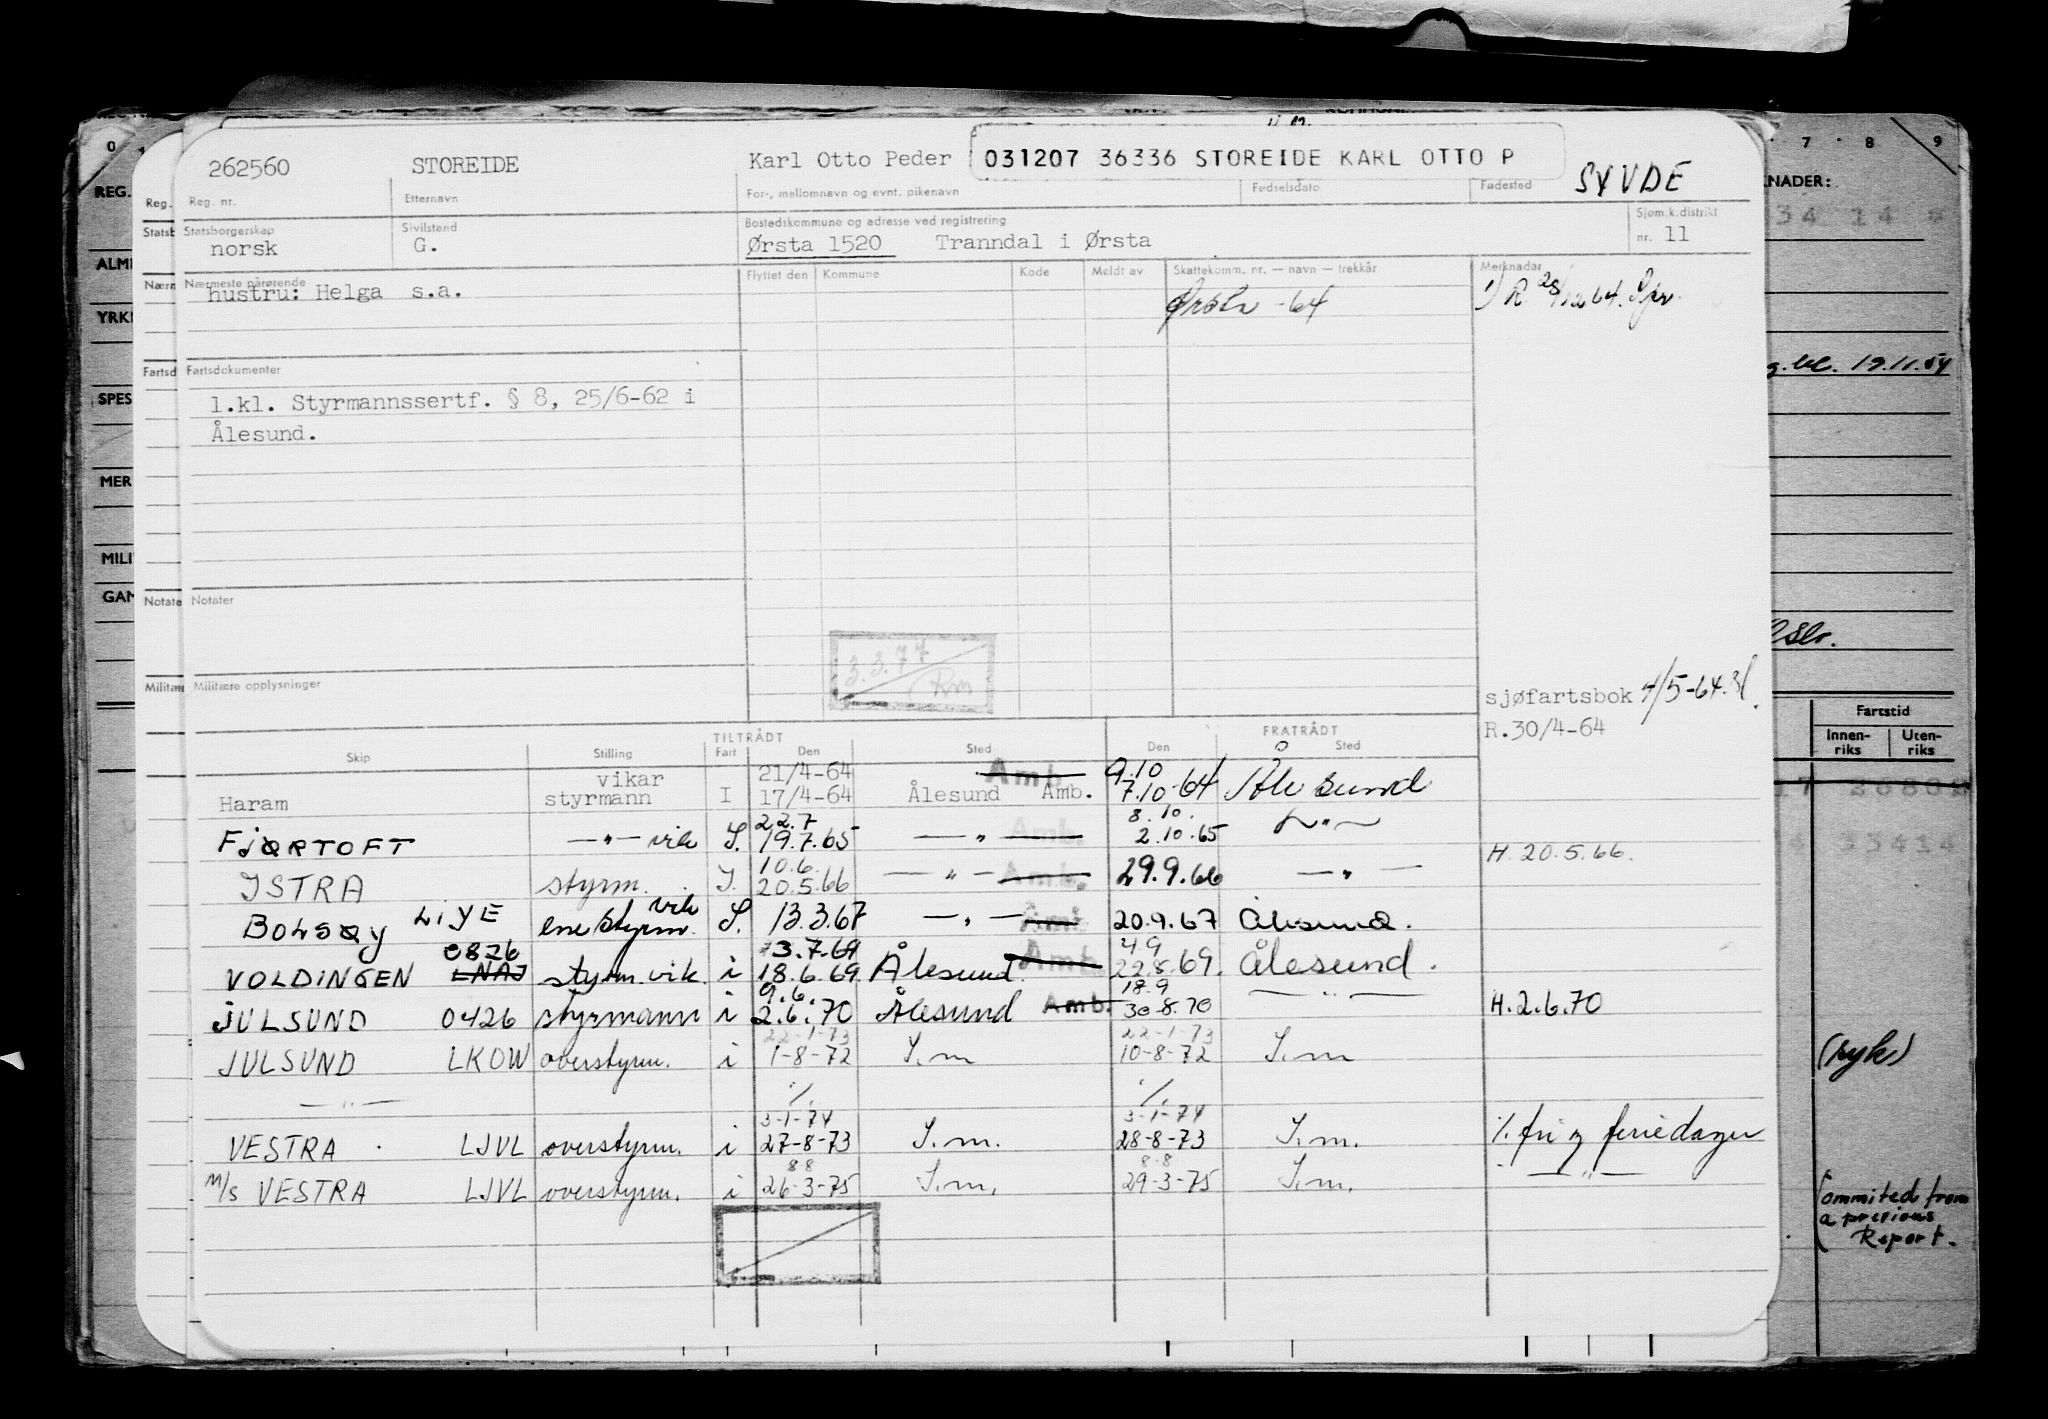 262560 STOREIDE Karl Otto Peder 031207 36336 STOREIDE KARL OTTO P SYVDE
Reg. nr. Etternavn For-, mellomnavn og evnt. pikenavn Fødselsdato Fødested
Statsborgerskap Sivilstand Bostedskommune og adresse ved registrering Sjøm.k.distrikt
norsk G. Ørsta 1520 Tranndal i Ørsta nr. 11
Nærmeste pårørende Flyttet den Kommune Kode Meldt av Skattekomm. nr. — navn — trekkår Merknader
hustru: Helga s.a. Ørsta -64 1) R. 28/12 64.
Fartsdokumenter
1.kl. Styrmannssertf. § 8, 25/6-62 i
Ålesund.
Notater
3.3.77
Rm
Militære opplysninger
sjøfartsbok 4/5-64.
R.30/4-64
TILTRÅDT FRATRÅDT
Skip Stilling Fart Den Sted Den Sted
vikar 21/4-64 Amb 9.10
Haram styrmann I 17/4-64 Ålesund Amb. 7.10-64 Ålesund
22.7 8.10.
FJØRTOFT —"— vik I. 19.7.65 —"— Amb. 2.10.65 —"—
10.6. H. 20.5.66.
ISTRA styrm. I. 20.5.66 —"— Amb. 29.9.66 —"—
vik
BOLSØY LIYE ene styrm. I. 13.3.67 —"— Amb 20.9.67 Ålesund.
0826 3.7.69 4.9
VOLDINGEN LNAJ styrm. vik. i 18.6.69 Ålesund. Amb. 22.8.69. Ålesund.
9.6. 18.9
JULSUND 0426 styrmann i 2.6.70 Ålesund Amb. 30-8.70 —"— H.2.6.70
22-1-73 22-1-73
JULSUND LKOW overstyrm. i 1-8-72 S.m 10-8-72 S.m
—"— ./. ./.
3-1-74 3-1-74
VESTRA LJVL overstyrm. i 27-8-73 S.m. 28-8-73 S.m. ./. fri og feriedager
8 8 8-8
M/S VESTRA LJVL overstyrm. i 26-3-75 S.m. 29-3-75 S.m. —"—
0
REG.
ALM
YRK
SPES
MER
MILI
GAM
Reg.
Statsb
Nærm
Fartsd
Notate
Militær
7 8 9
KNADER:
34 14
19.11.54
Fartstid
Innen-
riks
Uten-
riks
33414
(ryk)
ommited from
a previous
Report.